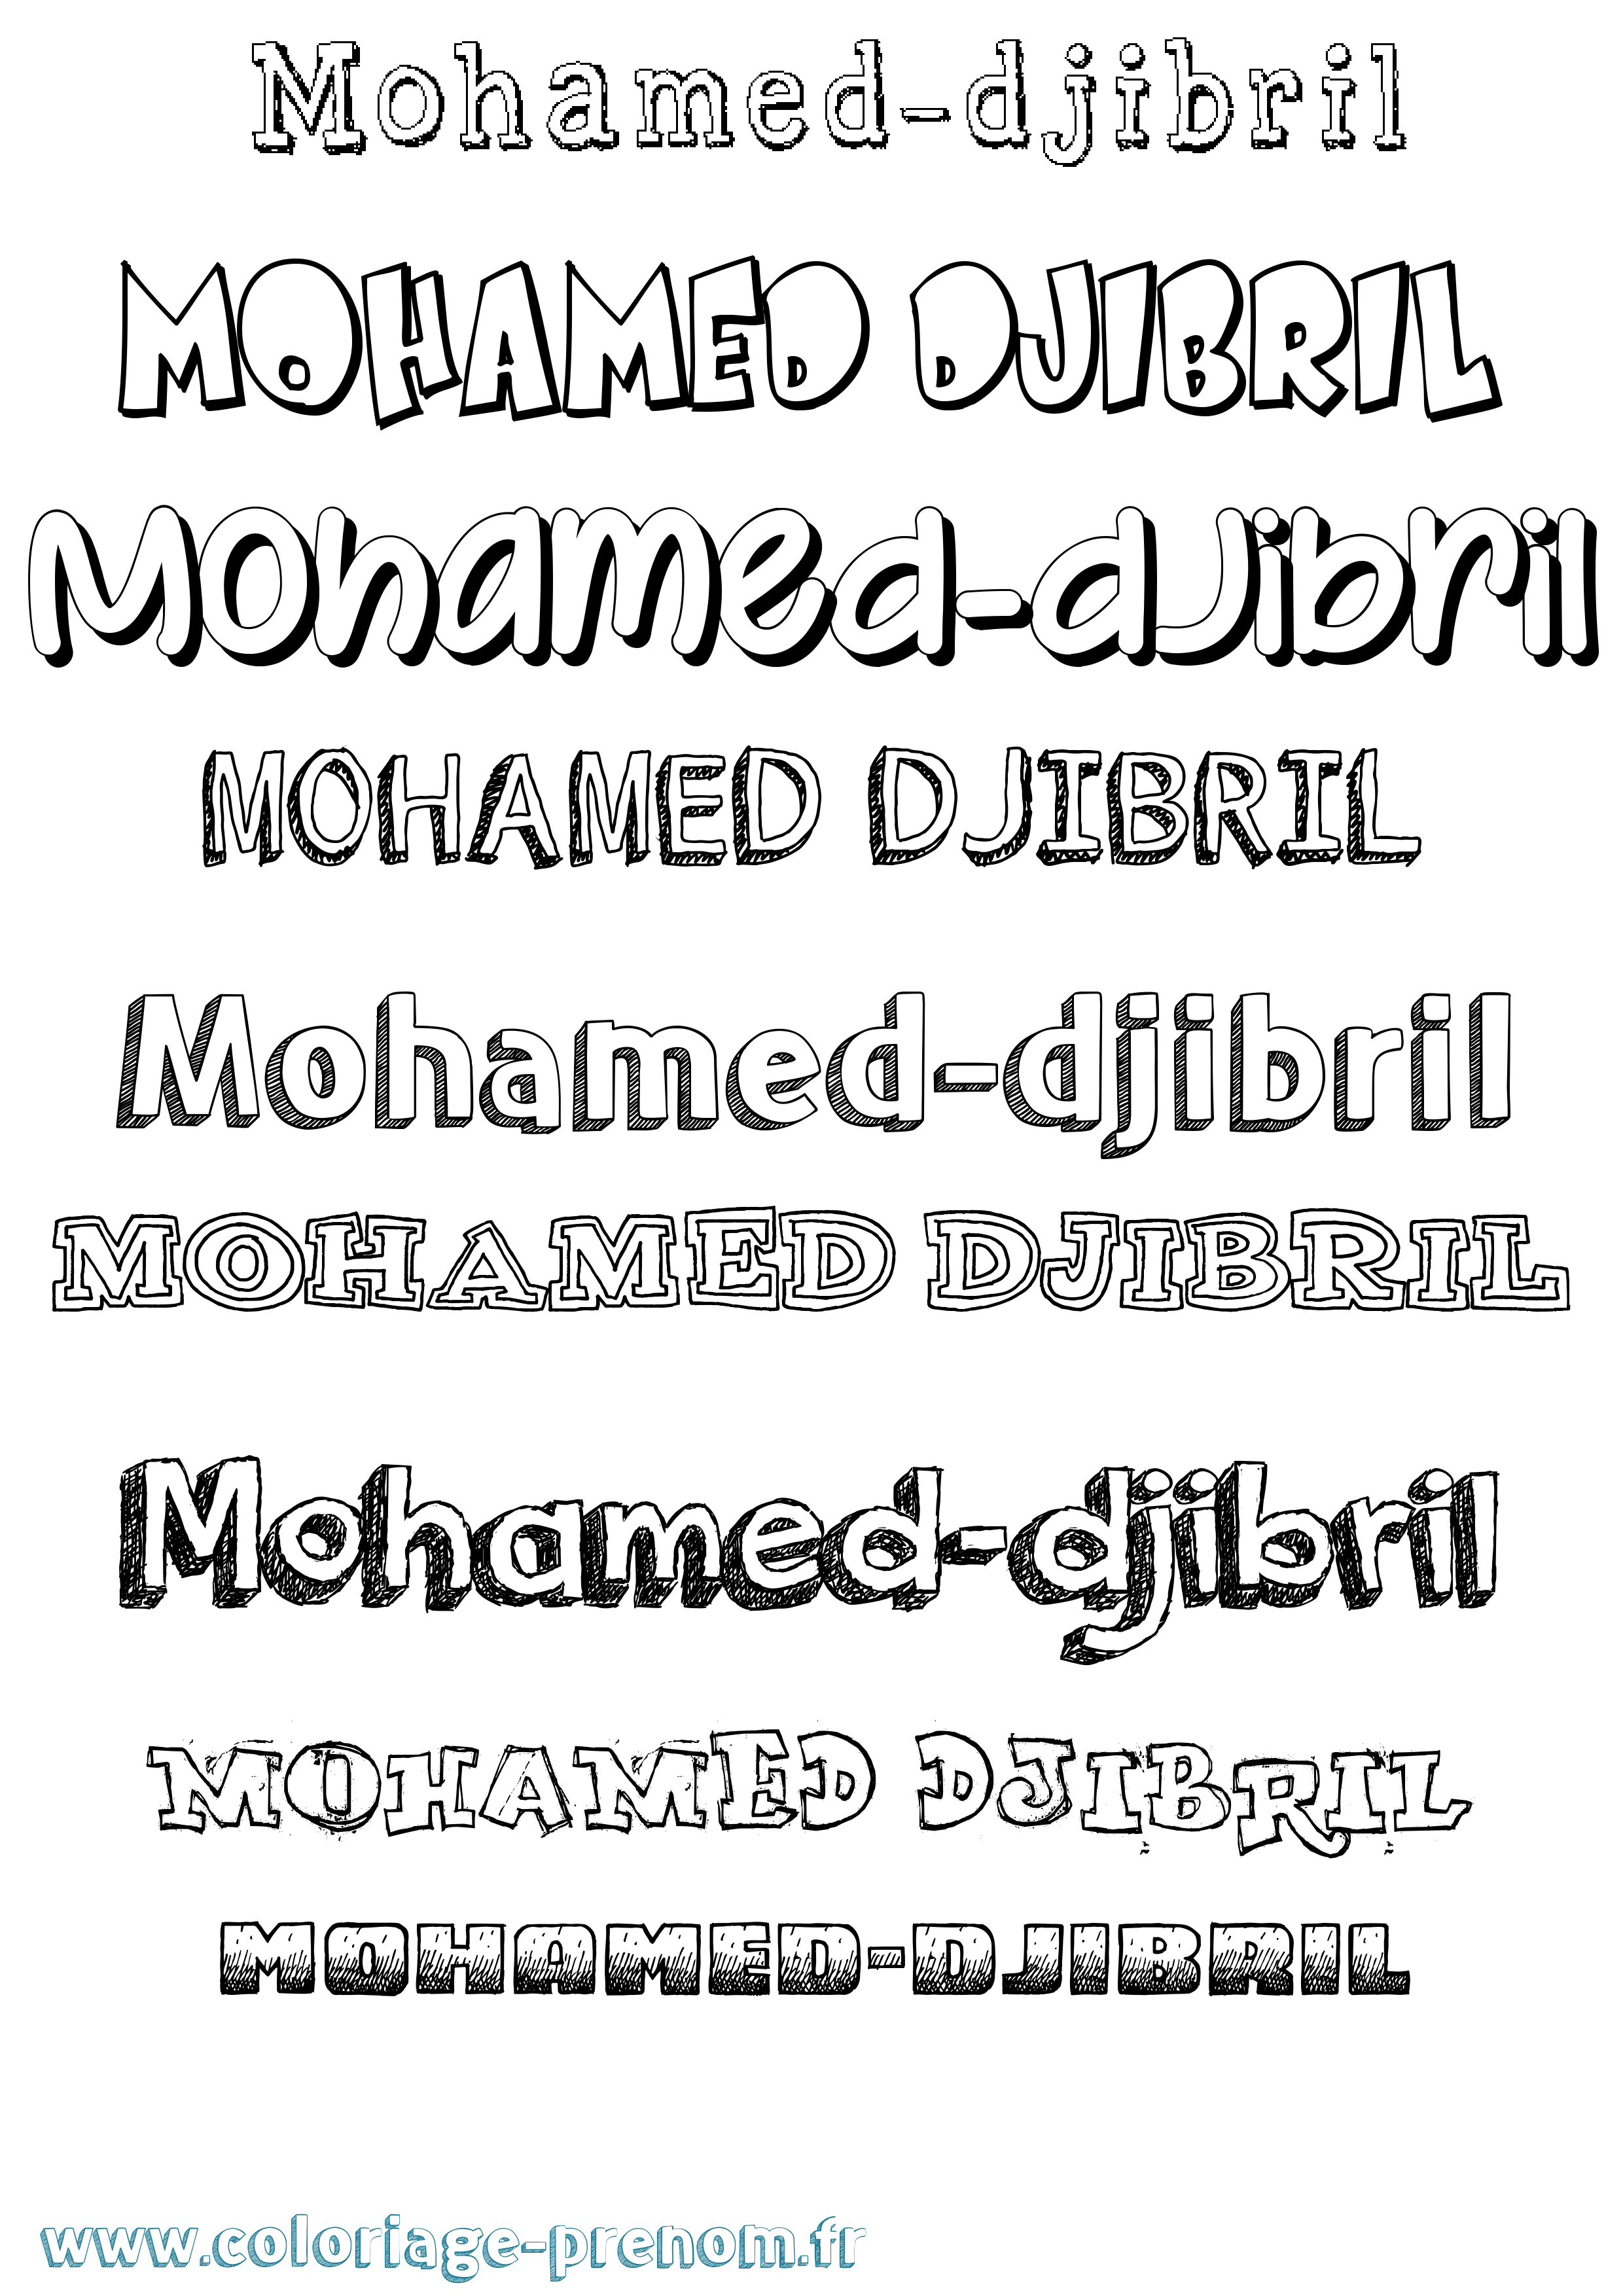 Mohamed-djibril
MOHAMED DJIBRIL
Mohamed-djibril
MOHAMED DJIBRIL
Mohamed-djibril
MOHAMED DJIBRIL
Mohamed-djibril
MOHAMED DJIBRIL
MOHAMED-DJIBRIL
www.coloriage-prenom.fr